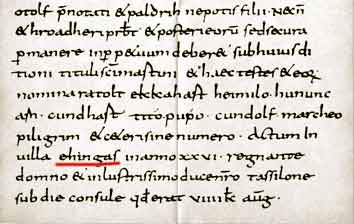 otolf p̄notati & paldrih nepotis filii. Necn̄
& hroadheri prb̄t & posterioru sed secura
permanere inp̄p&uum deber& sub huius di
tioni tituli scī martini & haec testes & eoꝝ
nomina ratolt ekckahart hemilo. hununc
cundhart tito. pupo. cundolf. marcheo
piligrim & c&eri sine numero. actum in
villa ehingas in anno xxvi. regnante
domno & inlustrissimo duce nr̄o tassilone
sub die consule qd̄ erat viiii k̄ aug̅.